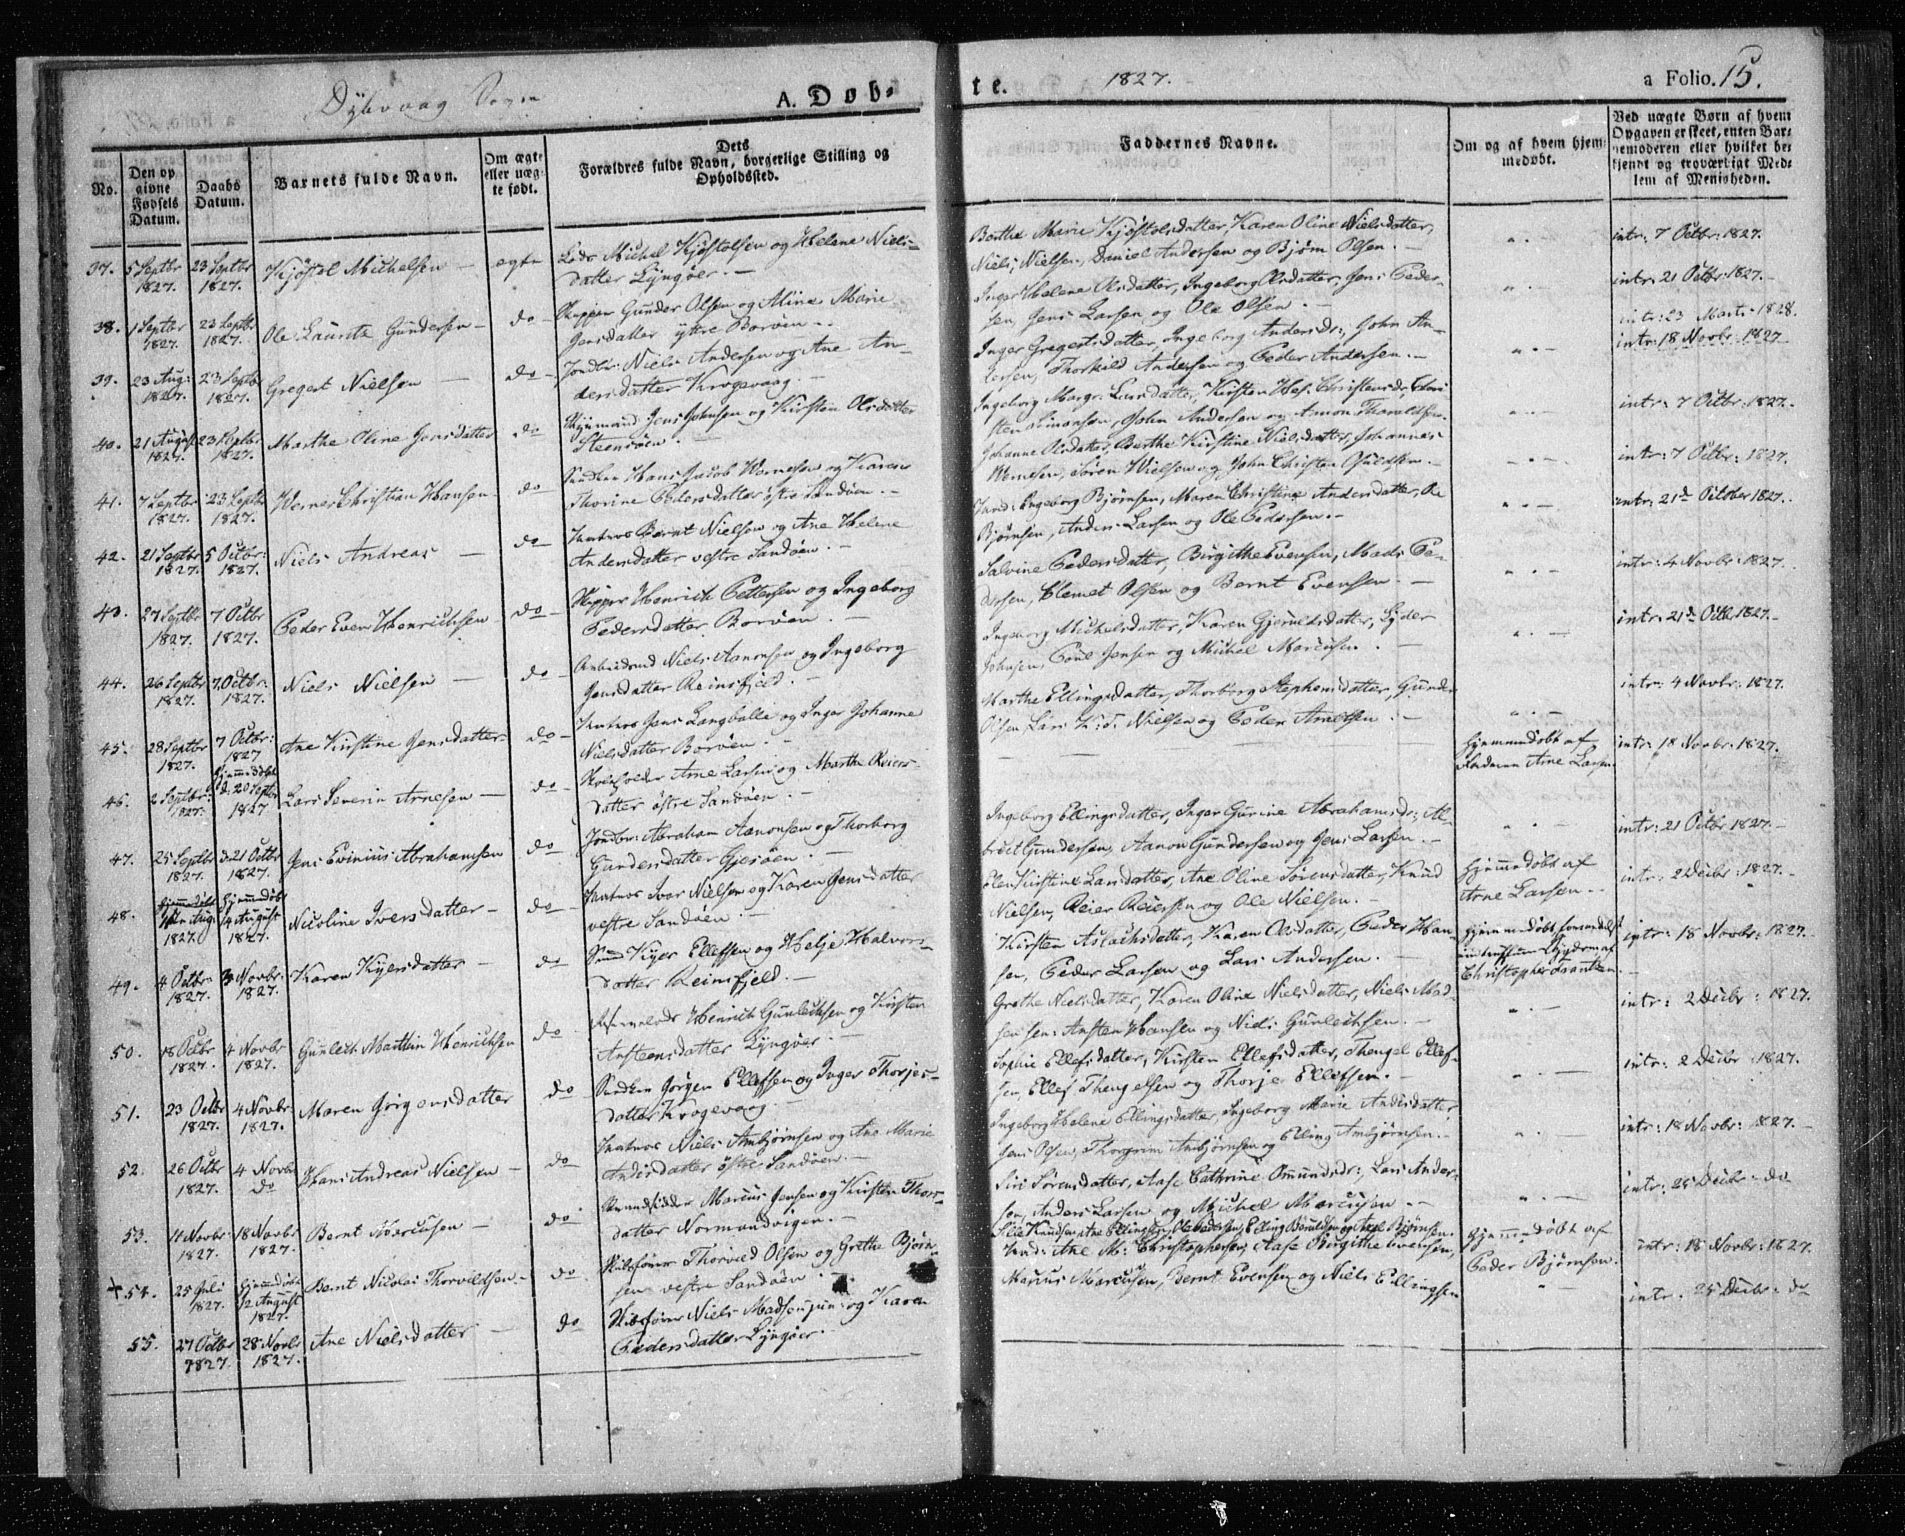 Dybvaag Sogn
A. Døb-
te.
1827.
a Folio. 15.
No.
Den op
givne
Fødsels
Datum.
Daabs
Datum.
Barnets fulde Navn.
Om ægte
eller uæg-
te født.
Dets
Forældres fulde Navn, borgerlige Stilling og
Opholdssted.
Faddernes Navne.
Om og af hvem hjem-
medøbt.
Ved uægte Børn af hvem
Opgaven er skeet, enten Bar-
nemoderen eller hvilket be-
kjendt og troværdigt Med-
lem af Menigheden.
37. 5 Septbr 1827. 23 Septbr 1827. Kjøstol Michelsen — egte
Lods Michel Kjøstolsen og Helene Niels-
datter Lyngøer. —
Berthe Marie Kjøstolsdatter, Karen Oline Nielsdatter,
Niels Nielsen, Daniel Andersen og Bjørn Olsen. —
intr: 7 Octbr: 1827.
38. 1 Septbr 1827. 23 Septbr 1827. Ole Laurits Gundersen — do —
Skipper Gunder Olsen og Aline Marie
Jensdatter yttre Borøen. —
Inger Helene Olsdatter, Ingeborg Olsdatter, Jens Peder-
sen, Jens Larsen og Ole Olsen. —
intr: 21 Octbr: 1827. —
39. 23 Aug: 1827. 23 Septbr 1827. Gregert Nielsen — do —
Jordbr: Niels Andersen og Ane An-
dersdatter Krogevaag. —
Inger Gregertsdatter, Ingeborg Andersdr:, John An-
dersen, Thorkild Andersen og Peder Andersen. —
intr: 23 Marts 1828.
intr: 18 Novbr: 1827
40. 21 August 1827. 23 Septbr 1827. Marthe Oline Jensdatter do
Jens Johnsen og Kirsten Olsdatter
Steenøen. —
Ingeborg Margr: Larsdatter, Kirsten Christensdr,
Simonsen, John Andersen og Amon Tharaldsen.
intr: 7 Octbr: 1827.
41. 7 Septbr 1827. 23 Septbr 1827. Werner Christian Hansen do
Hans Jacob Wernesen og Karen
Thorine Pedersdatter østre Sandøen. —
Johanne Olsdatter, Berthe Kirstine Nielsdatter, Johannes
Wernesen, Søren Nielsen og John Christen —
intr: 7 Octbr: 1827.
42. 21 Septbr 1827. 5 Octbr: 1827. Niels Andreas — do —
Bernt Nielsen og Ane Helene
Andersdatter vestre Sandøen. —
Ingeborg Bjørnsen, Maren Christine Andersdatter, Ole
Bjørnsen, Anders Larsen og Ole Pedersen. —
intr: 21de October 1827.
43. 27 Septbr 1827. 7 Octbr 1827. Peder Even Henrichsen do —
Skipper Henrich Pettersen og Ingeborg
Pedersdatter Borøen. —
Salvine Pedersdatter, Birgithe Evensen, Mads Pe-
dersen, Clemet Olsen og Bernt Evensen —
intr: 4 Novbr: 1827.
44. 26 Septbr 1827. 7 Octbr: 1827. Niels Nielsen — do —
Niels Aanonsen og Ingeborg
Jensdatter Reinsfjeld. —
Ingeborg Michelsdatter, Karen Gjeruldsdatter, Lyder
Johnsen, Poul Jensen og Michel Marcusen. —
intr: 21de Octb 1827. —
45. 28 Septbr 1827. 7 Octbr: 1827 Ane Kirstine Jensdatter do —
Jens Langballe og Inger Johanne
Nielsdatter Borøen. —
Marthe Ellingsdatter, Thorborg Stephensdatter, Gunder
Olsen, Lars K: T: Nielsen og Peder Arnesen. —
intr: 4 Novbr: 1827.
46. 2 Septbr: 1827. hjemmedøbt d. 20 Septbr 1827 Lars Severin Arnesen — do —
Arne Larsen og Marthe Reiers-
datter østre Sandøen. —
hjemmedøbt af
Faderen Arne Larsen
intr: 18 Novbr: 1827.
47. 25 Septbr 1827. 21 Octbr 1827. Jens Evinius Abrahamsen do
Jordbr: Abraham Aanonsen og Thorborg
Gundersdatter Gjesøen. —
Ingeborg Ellingsdatter, Inger Gurine Abrahamsdr:, Al-
bret Gundersen, Aanon Gundersen og Jens Larsen. —
intr: 21 Octbr 1827. —
48. 1827. hjemmedøbt 14 August 1827. Nicoline Iversdatter — do —
Iver Nielsen og Karen Jensdatter
vestre Sandøen. —
Kirstine Larsdatter, Ane Oline Sørensdatter, Knud
Nielsen, Reier Reiersen og Ole Nielsen. —
hjemmedøbt af
Arne Larsen. —
intr: 2 Decbr: 1827. —
49. 4 Octbr 1827. 3 Novbr: 1827. Karen Kyersdatter — do
Kyer Ellefsen og Helje Halvors-
datter Reinsfjeld. —
Kirsten Aslachsdatter, Karen Olsdatter, Peder Han-
sen, Peder Larsen og Lars Andersen. —
hjemmedøbt formedelst
indtruffen Sygdom af
Christopher Frantzen
intr: 18 Novbr: 1827.
50. 18 Octbr 1827. 4 Novbr 1827. Gunlech Marthin Henrichsen do
Henrich Gunlechsen og Kirsten
Anstensdatter Lyngøer. —
Grethe Nielsdatter, Karen Oline Nielsdatter, Niels Mad-
sen, Ansten Hansen og Niels Gunlechsen. —
intr: 2 Decbr: 1827.
51. 23 Octbr 1827. 4 Novbr 1827. Maren Jørgensdatter do
Jørgen Ellefsen og Inger Thorjes-
datter Krogevaag. —
Sophie Ellefsdatter, Kirsten Ellefsdatter, Thengel Ellef-
sen, Ellef Thengelsen og Thorje Ellefsen. —
intr: 2 Decbr 1827.
52. 26 Octbr 1827. 4 Novbr do Hans Andreas Nielsen — do
Niels Ambjørnsen og Ane Marie
Andersdatter østre Sandøen. —
Ingeborg Helene Ellingsdatter, Ingeborg Marie Andersdatter
Jens Olsen, Thorgrim Ambjørnsen og Elling Ambjørnsen. —
intr: 18 Novbr: 1827. —
53. 11 Novbr: 1827. 18 Novbr 1827. Bernt Marcusen — do
Strandsidder Marcus Jensen og Kirsten Thors-
datter Normandvigen. —
Siri Sørensdatter, Aase Cathrine Omundsdr:, Lars Ander-
sen, Anders Larsen og Michel Marcusen —
intr: 25 Decbr: do
+ 54. 25 Juli 1827. hjemmedøbt 12 August 1827. Bernt Nicolai Thorvildsen — do
Skibsfører Thorvild Olsen og Grethe Bjørn-
sen vestre Sandøen. —
Ane Ellingsen, Ole Pedersen, Elling og Axel Bjørnsen.
hjemmedøbt af
Peder Bjørnsen.
intr: 18 Novbr: 1827.
55. 27 Octbr 1827. 28 Novbr 1827. Ane Nielsdatter — do
Skibsfører Niels Madsen jun: og Karen
Pedersdatter Lyngøer. —
Ane M: Christophersen, Aase Birgithe Evensen,
Marcus Marcusen, Bernt Evensen og Niels Ellingsen
intr: 25 Decbr: do